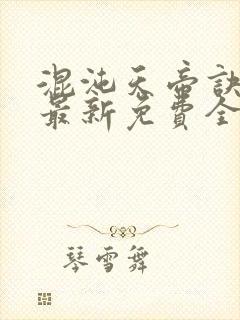 混沌天帝訣
最新免費全
琴雪舞